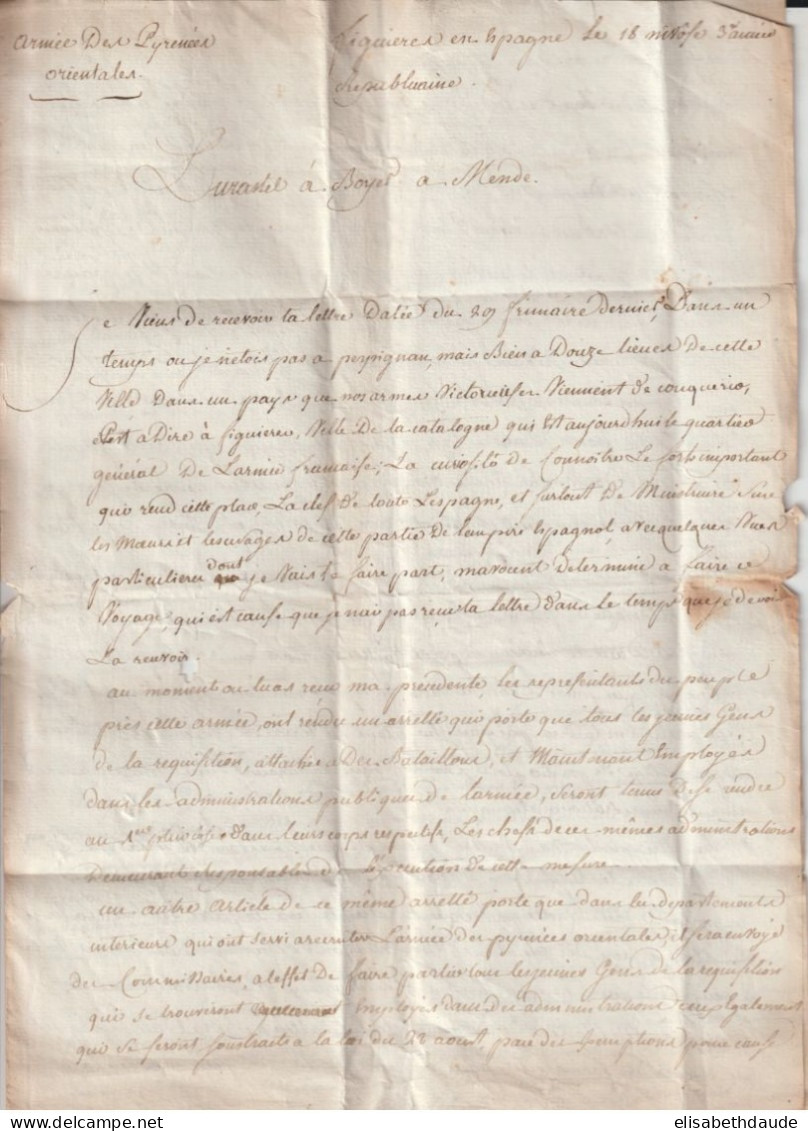 armée Des Pyrenées
orientales.
figuieres en Espagne Le 18 nivose 3e année
Republicaine.
à Boyer a Mende.
Je Viens de recevoir ta lettre Datée du 29 frimaire dernier, Dans un
temps ou je n'etois pas a perpignan, mais Bien a Douze lieues de cette
Ville Dans un pays que nos armes Victorieuses Viennent de conquerir,
C'est a Dire à figuieres, Ville De la catalogne qui Est aujourdhui le quartier
général De L'armée francaise; La curiosité de Connoitre Le fort important
qui rend cette place, La clef de toute L'espagne, et surtout De M'instruire sur
les Mœurs et les usages de cette partie de l'empire Espagnol, avec quelques Vues
particulieres dont je Vais te faire part, m'avoient Determiné a faire ce
Voyage, qui est cause que je n'ai pas reçu ta lettre dans le temps que je devois
La recevoir.
au moment ou tu as reçu ma precedente les representants du peuple
près cette armée, ont rendu un arretté qui porte que tous les jeunes Gens
de la requisition, attachés a Des Bataillons, et Maintenant Employés
dans les administrations publiques de l'armée, seront tenus de se rendre
au 1er pluviose dans leurs corps respectifs, Les chefs de ces mêmes administrations
Demeurant responsables de L'execution de cette mesure.
un autre article de ce même arretté porte que dans les departements
interieurs qui ont servi a recruter L'armée des pyrenées orientales, il sera envoyé
des Commissaires, a l'effet de faire partir tous les jeunes Gens de la requisition
qui se trouveront Employés dans des administrations ou Egalement
qui se seront soustraits a la loi du 22 aout, par des Exemptions pour cause
elisabethdaude